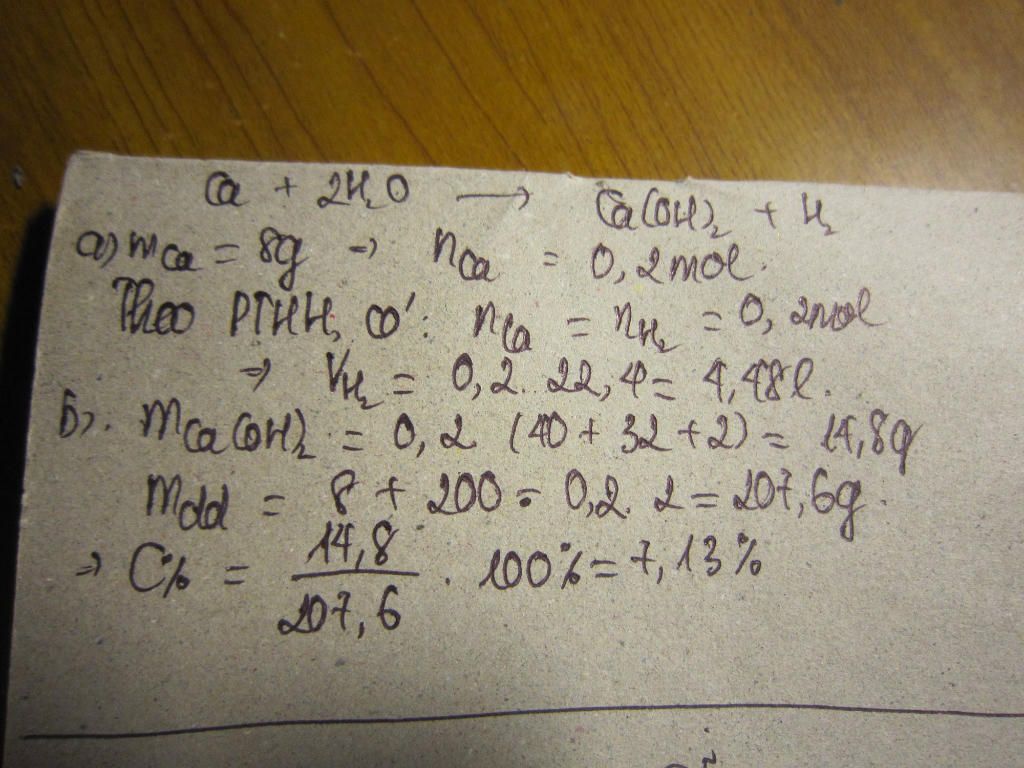 Ca + 2H₂O → Ca(OH)₂ + H₂
a) mCa = 8g → nCa = 0,2mol.
Theo PTHH, có: nCa = nH₂ = 0,2mol
⇒ VH₂ = 0,2. 22,4 = 4,48l.
b). mCa(OH)₂ = 0,2 (40+32+2) = 14,8g
mdd = 8 + 200 - 0,2. 2 = 207,6g.
⇒ C% = 14,8/207,6 . 100% = 7,13%